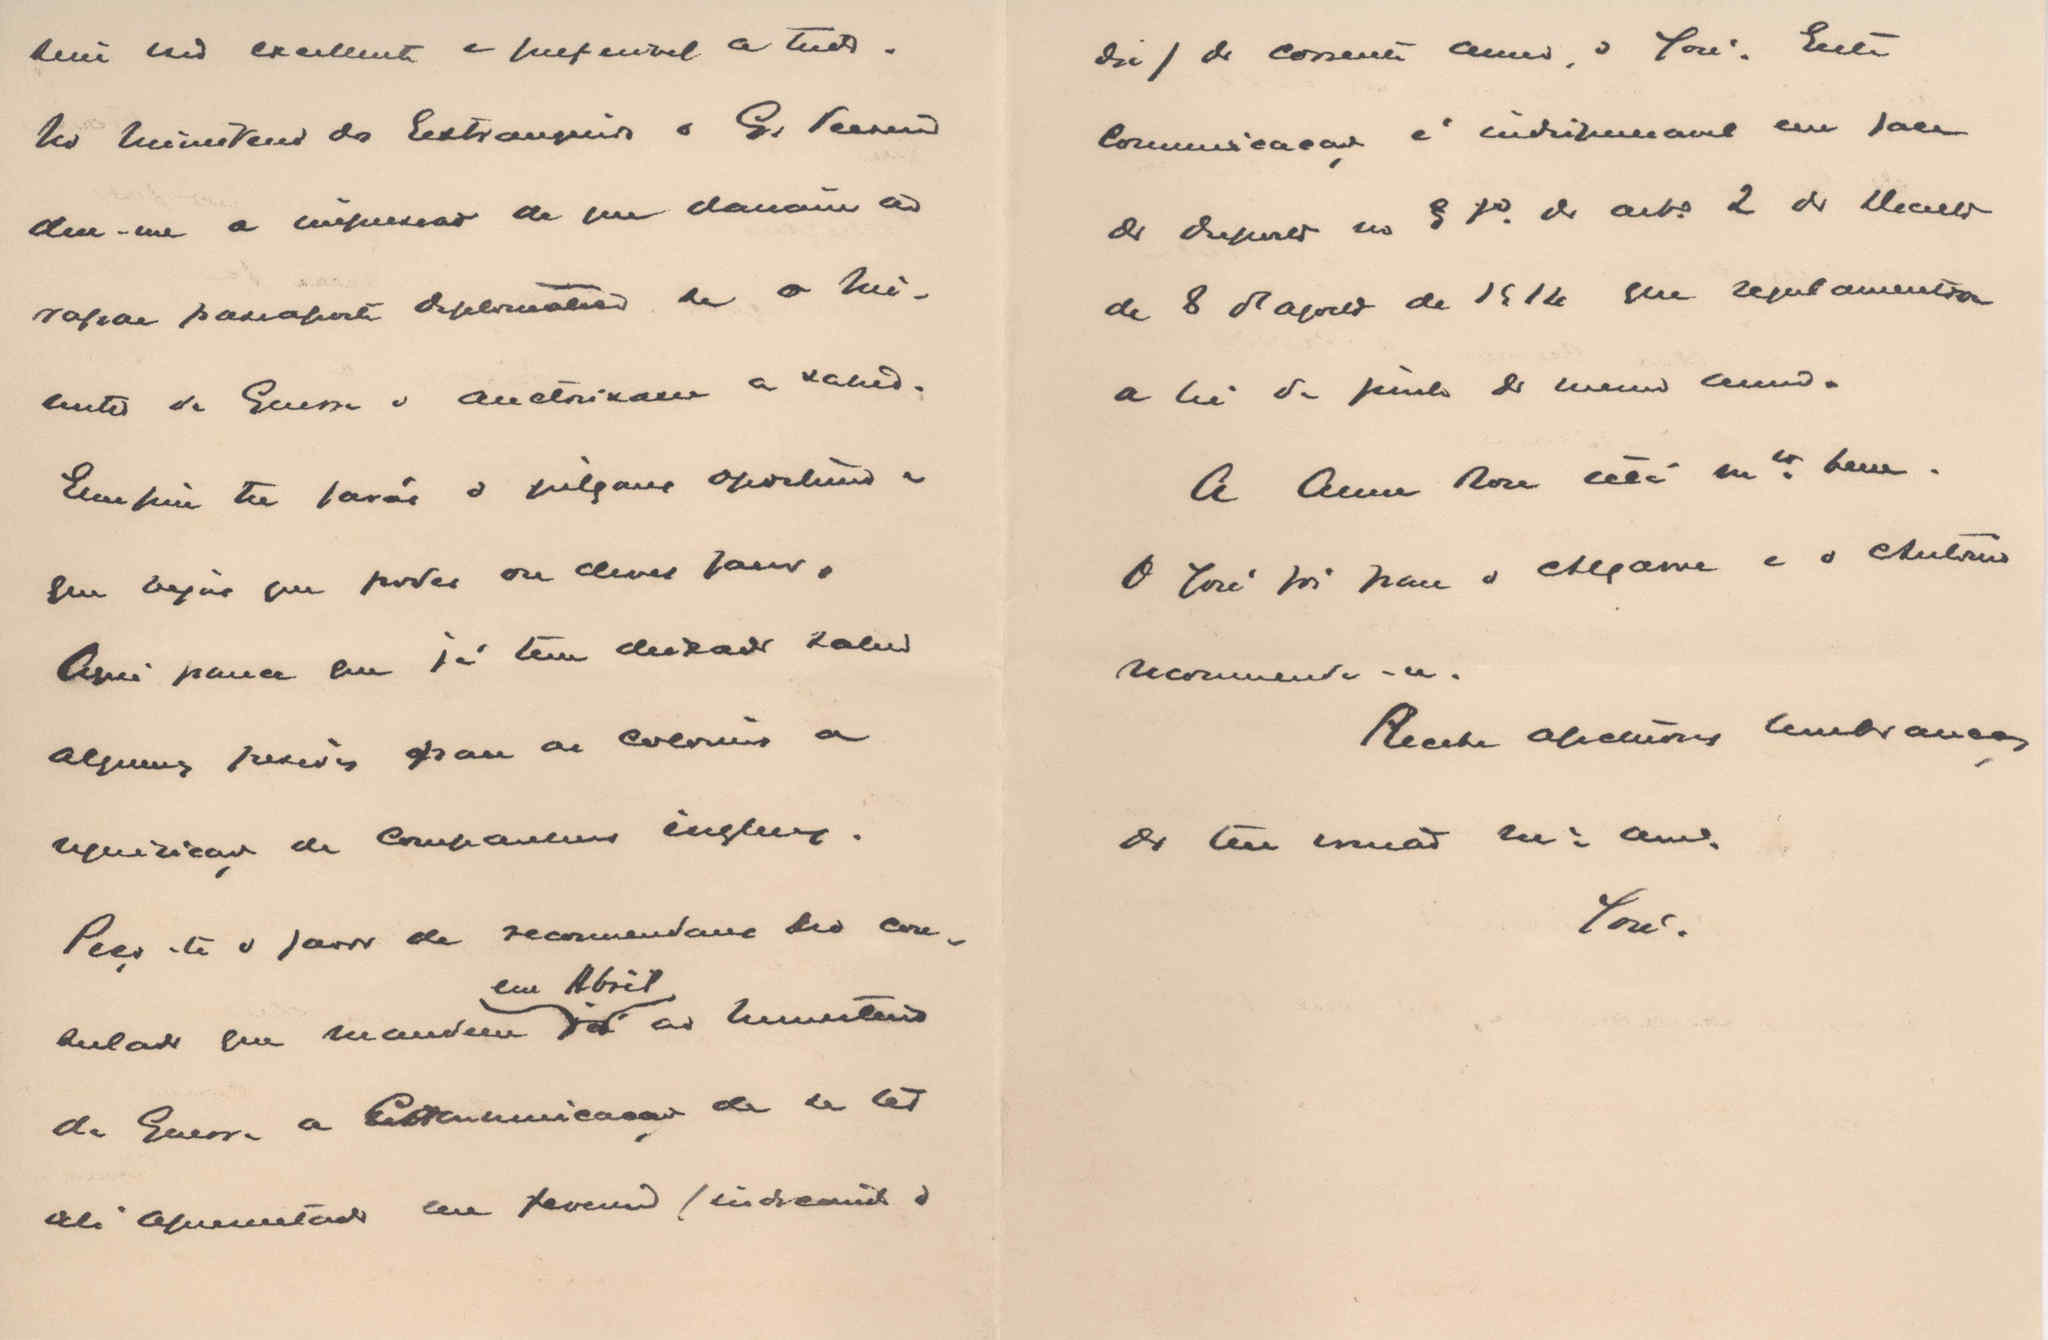 seria isso excellente e preferivel a tudo.
No Ministerio dos Extrangeiros o G.
deu-me a impressão de que dariam ao
rapaz passaporte diplomatico se o Mi-
nisterio da Guerra o auctorizasse a sahir.
Emfim tu farás o que julgares opportuno e
que vejas que podes ou deves fazer.
Aqui parece que já tem deixado sahir
alguns para as colonias a
requisição de companhias inglezas.
Peço-te o favor de recommendares no con-
em Abril
sulado que mandem já ao Ministerio
da Guerra a communicação de se ter
ali apresentado em fevereiro (indicando o
dia) do corrente anno, o José. Esta
communicação é indispensavel em face
do disposto no § 7º. do artº 2 do Decreto
de 8 d'agosto de 1914 que regulamentou
a lei de junho do mesmo anno.
A Anna Rosa está mtº. bem.
O José foi para o Algarve e o Antonio
recommenda-se.
Recebe affectuosas lembranças
do teu irmão mtº amº.
José.